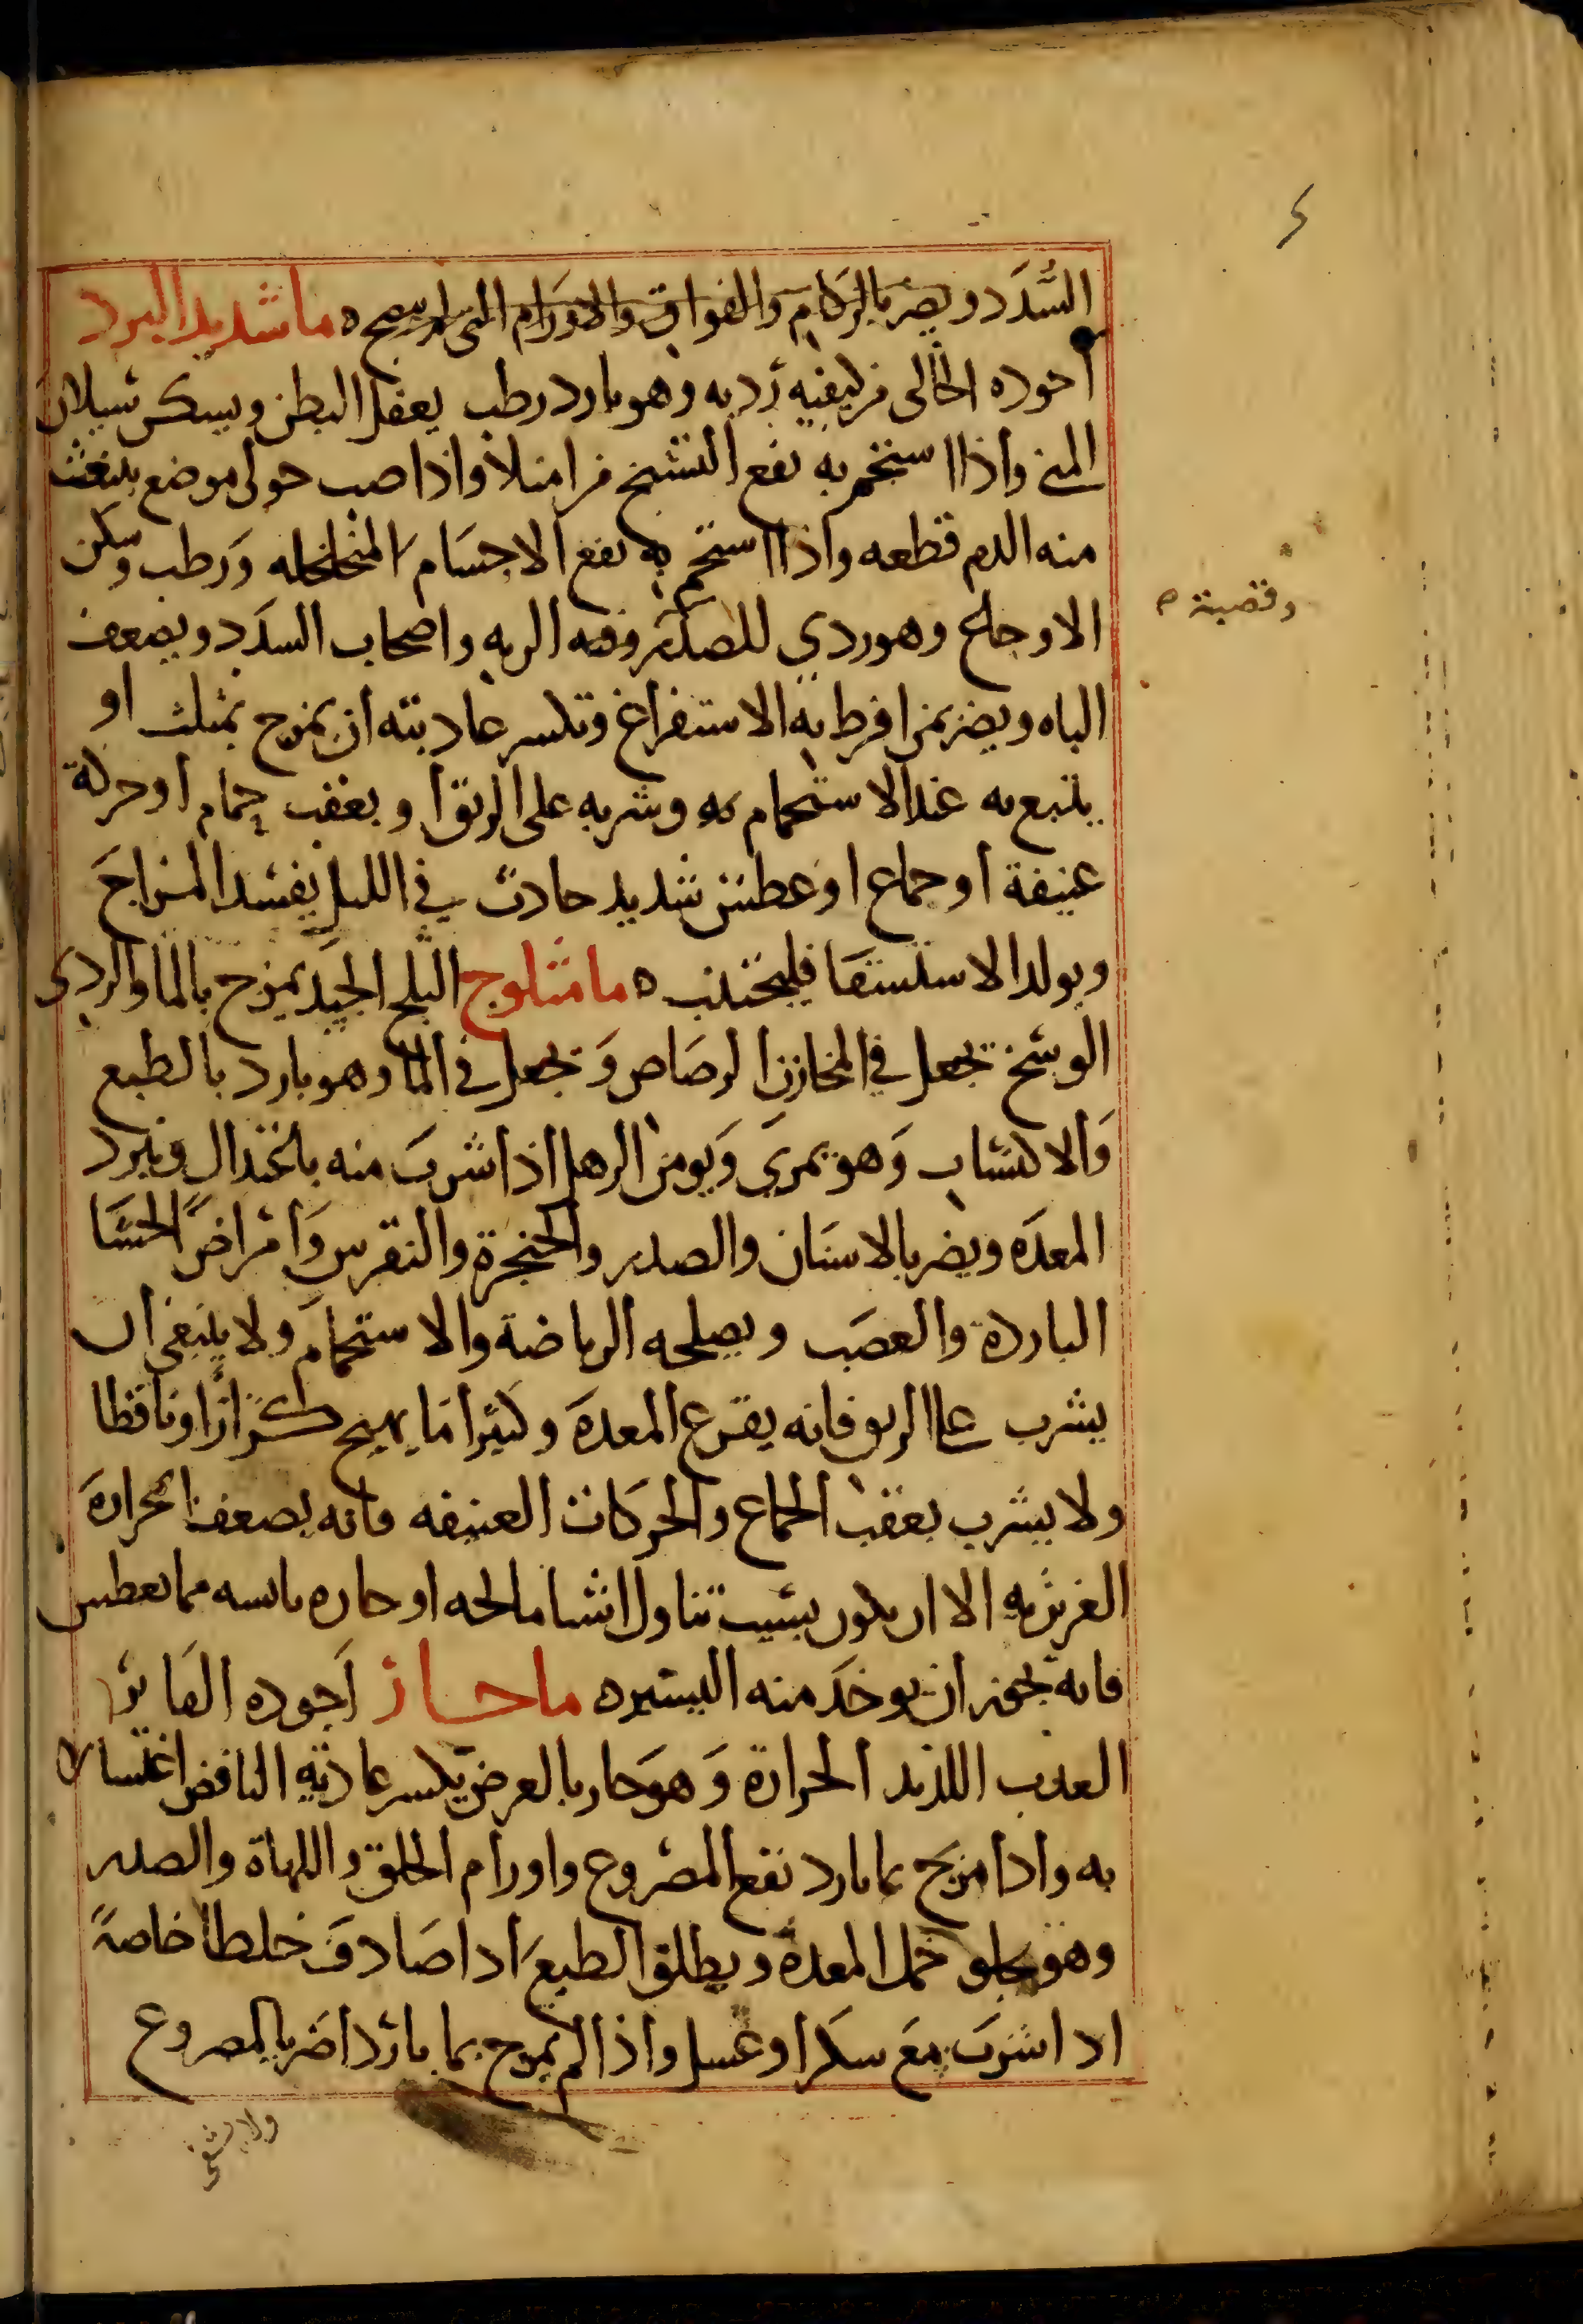 السُّدَد ويضر بالزكام والفواق والاورام التي لم تنضج ه ما شديد البرد
اجوده الخالى من كيفيه رديه وهو بارد رطب يعقل البطن ويسكن سيلان
المنى واذا استحم به نفع التشنج من امتلا واذا صب حول موضع ينبعث
منه الدم قطعه واذا استحم به نفع الاجسام المتخلخله ورطب وسكن
الاوجاع وهو ردي للصدر وقصبه الريه واصحاب السدد ويضعف
وقصبة ه
الباه ويضر بمن افرط به الاستفراغ وتكسر عاديته ان يمزج بمثلث او
يتبع به عند الاستحمام به وشربه على الريق او بعقب حمام او حركة
عنيفة او جماع او عطش شديد حادث في الليل يفسد المزاج
ويولد الاستسقا فليجتنب ه ما مثلوج الثلج الجيد يمزج بالما والردي
الوسخ يجعل في المخازن الرصاص ويجعل في الما وهو بارد بالطبع
والاكتساب وهو يمري ويومن الرهل اذا شرب منه باعتدال ويبرد
المعده ويضر بالاسنان والصدر والحنجرة والنقرس وامراض الحشا
الباردة والعصب ويصلحه الرياضة والاستحمام ولا ينبغي ان
يشرب على الريق فانه يقرع المعدة وكثيرا ما يهيج كزازا ونافضا
ولا يشرب بعقب الجماع والحركات العنيفه فانه يضعف الحرارة
الغريزيه الا ان يكون بسبب تناول اشيا مالحه او حاره يابسه مما يعطش
فانه يجوز ان يوخذ منه اليسيره ما حار اجوده الفاتر
العذب اللذيذ الحرارة وهو حار بالعرض يكسر عاديه النافض اغتسالا
به واذا مزج بما بارد نفع المصروع واورام الحلق واللهاة والصدر
وهو يجلو خمل المعدة ويطلق الطبع اذا صادف خلطا خاصة
اذا شرب مع سكر او عسل واذا لم يمزج بما بارد اضر بالمصروع